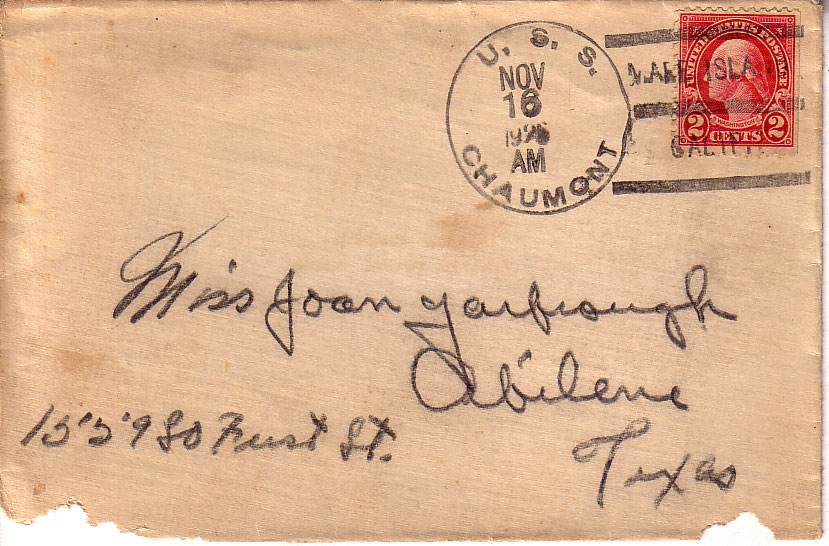 U. S. S.
NOV
16
1926
AM
CHAUMONT
MARE ISLAND
CALIF.
UNITED STATES POSTAGE
WASHINGTON
2 CENTS 2
Miss Joan Yarbrough
Abilene
1559 So First St.
Texas